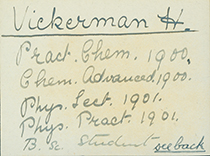 Vickerman H.
Pract. Chem. 1900.
Chem. Advanced, 1900.
Phys. Lect. 1901.
Phys. Pract. 1901.
B. Sc. Student see back